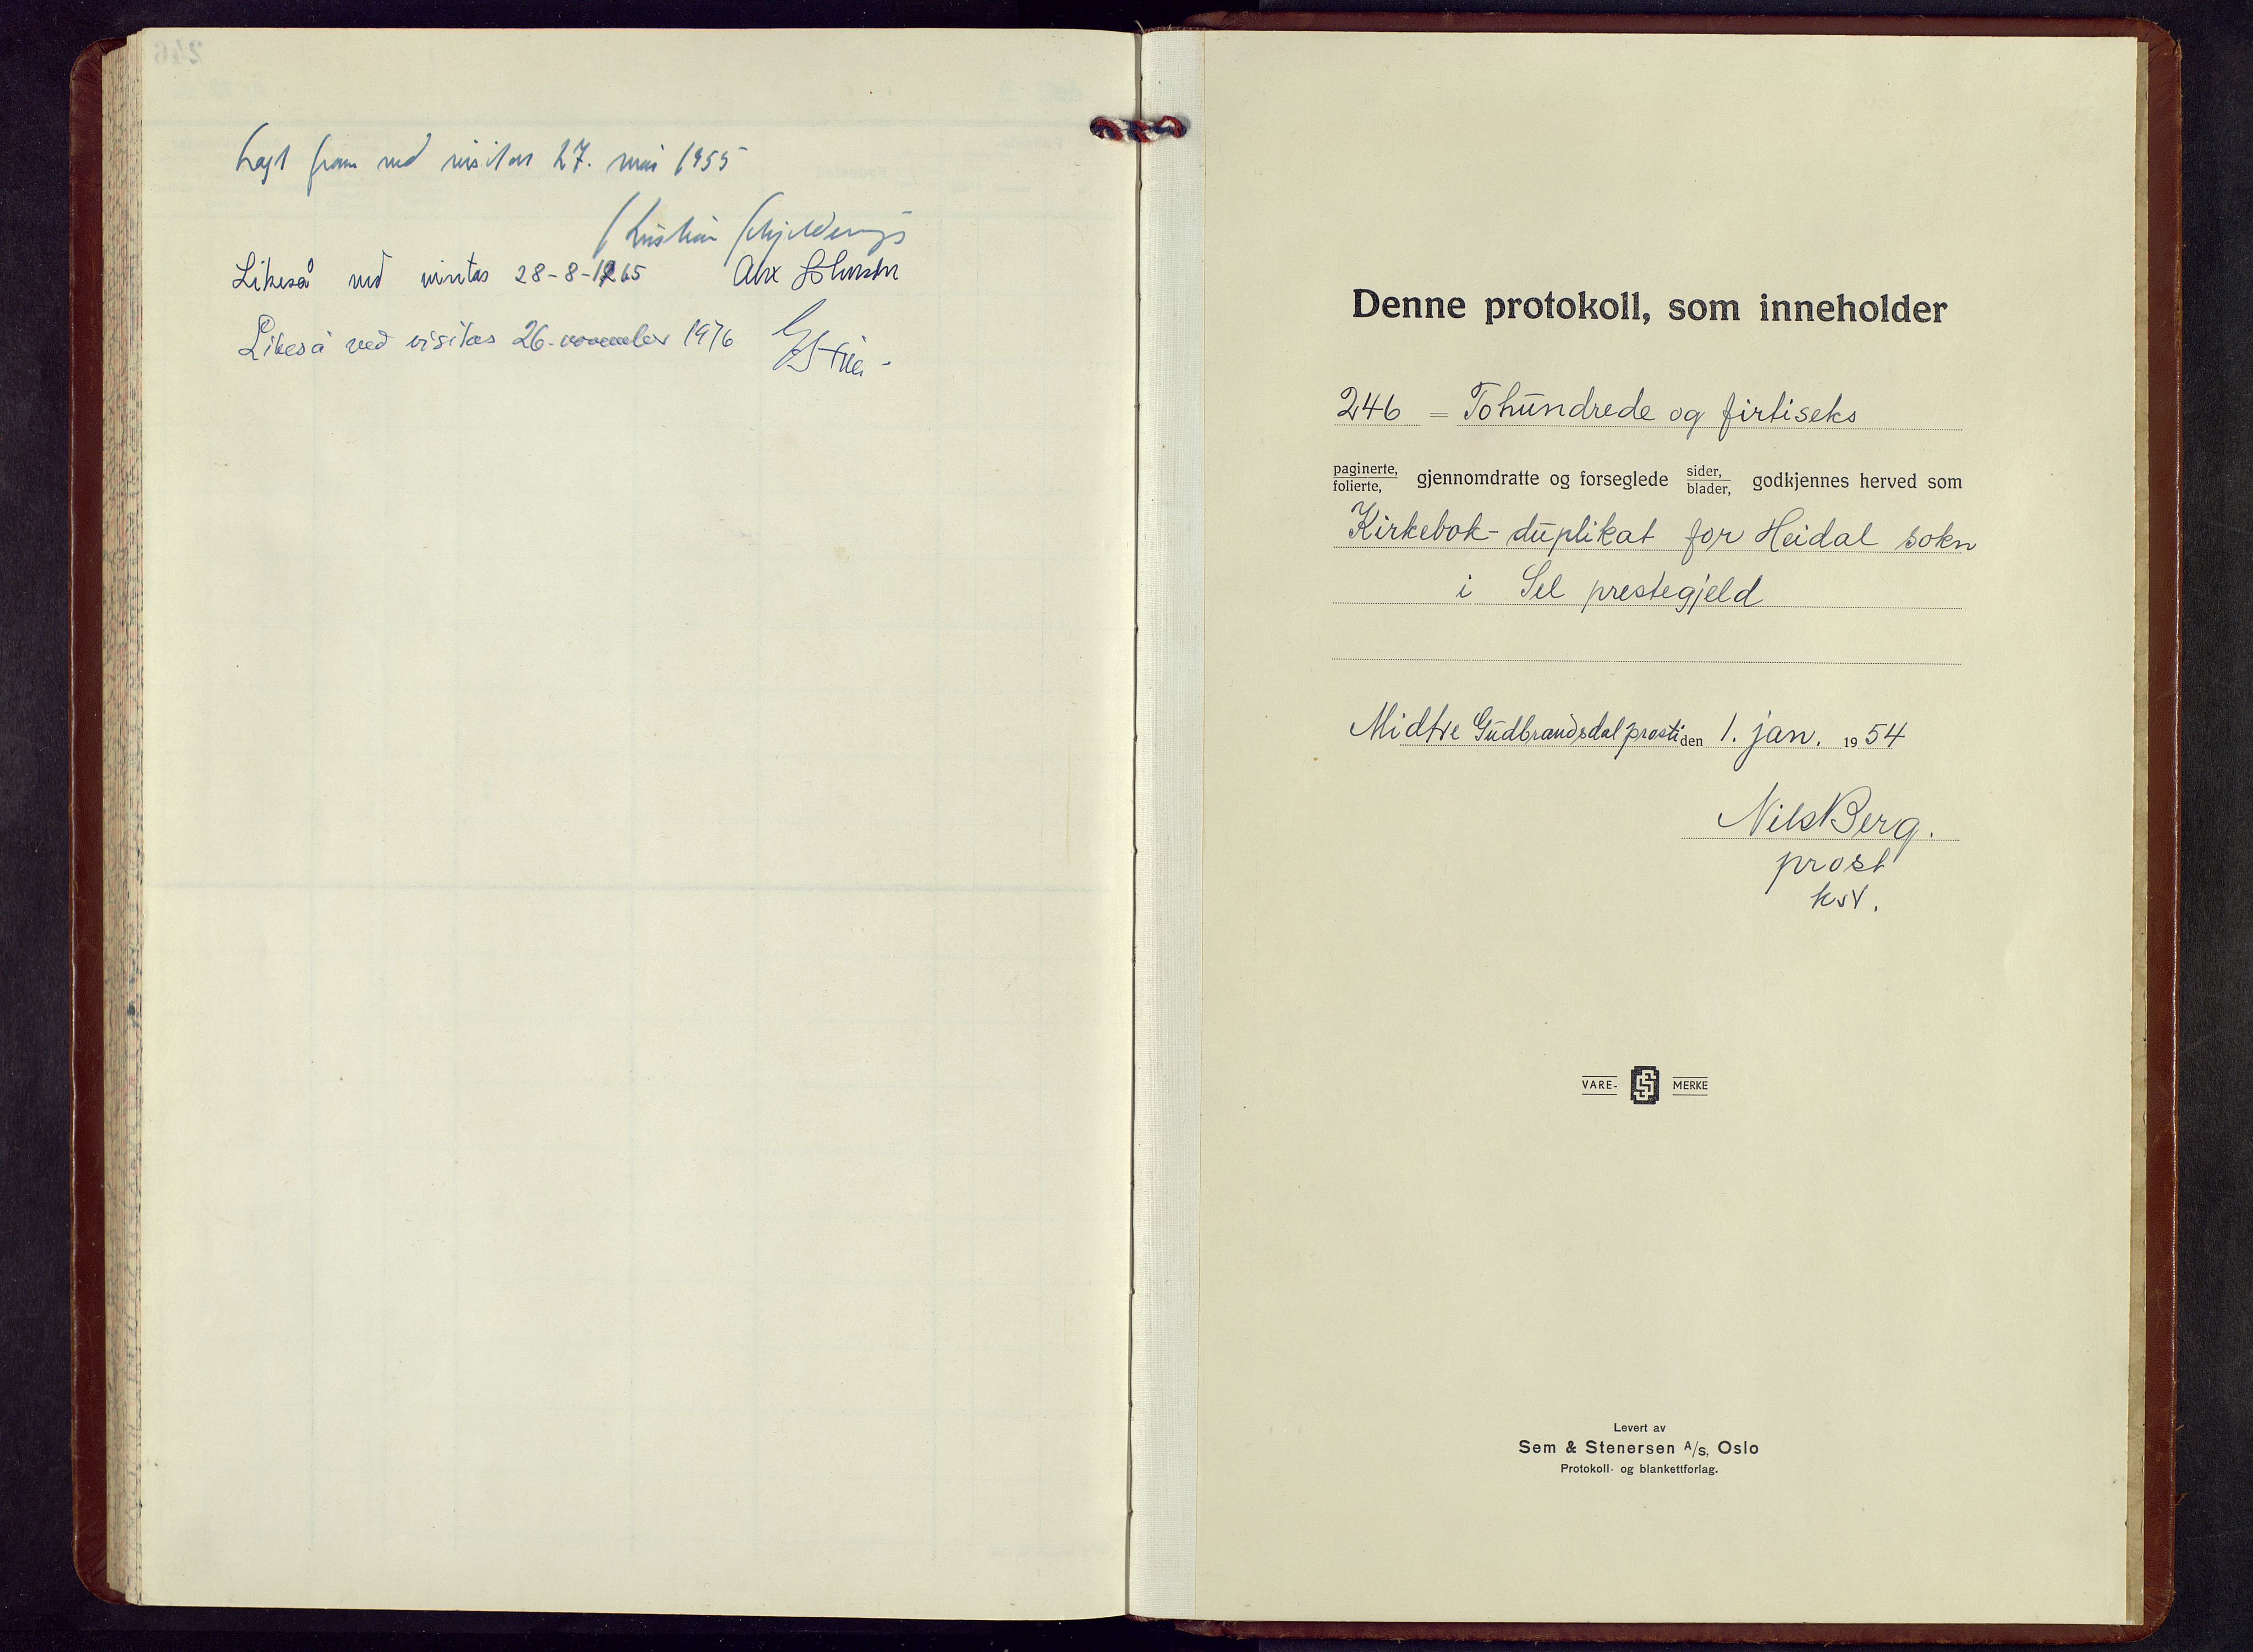 Lagt fram ved visitas 27. mai 1955
Kristian Schjelderup
Likeså ved visitas 28-8-1965 Alex Johnson
Likeså ved visitas 26. november 1976
Denne protokoll, som inneholder
246 = Tohundrede og firtiseks
paginerte, folierte, gjennomdratte og forseglede sider, blader, godkjennes herved som
Kirkebok-duplikat for Heidal sokn
i Sel prestegjeld
Midtre Gudbrandsdal prosti den 1. jan. 1954
Nils Berg.
prost
kst.
VARE- MERKE
Levert av
Sem & Stenersen A/s, Oslo
Protokoll- og blankettforlag.